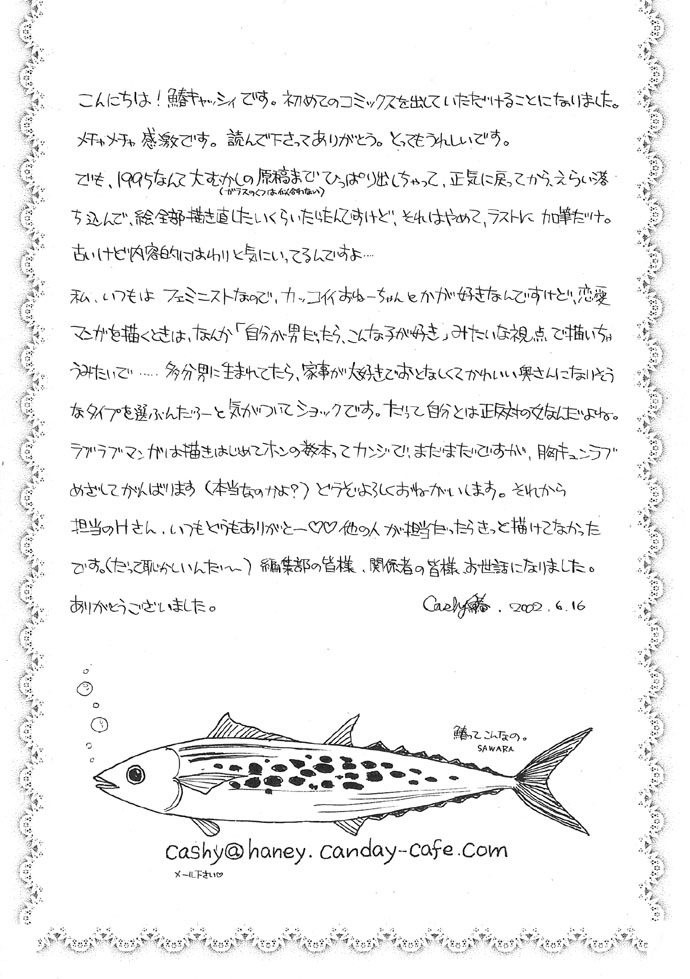 こんにちは！鰆キャッシィです。初めてのコミックスを出していただけることになりました。
メチャメチャ感激です。読んで下さってありがとう。とってもうれしいです。
でも、1995なんて大むかしの原稿までひっぱり出しちゃって、正気に戻ってから、えらい落
(ガラスのくつは似合わない)
ち込んで、絵全部描き直したいくらいだったんですけど、それはやめて、ラストに加筆だけ。
古いけど内容的にはわりと気にいってるんですよ…
私、いつもは フェミニストなので、カッコイイおねーちゃんとかが好きなんですけど、恋愛
マンガを描くときは、なんか「自分が男だったら、こんな子が好き」みたいな視点で描いちゃ
うみたいで…… 多分男に生まれてたら、家事が大好きでおとなしくてかわいい奥さんになりそう
なタイプを選ぶんだろーと気がついてショックです。だって自分とは正反対の女なんだよね。
ラブラブマンガは描きはじめてホンの数本ってカンジで、まだまだですが、胸キュンラブ
めざしてがんばります（本当なのかよ？）どうぞよろしくおねがいします。それから
担当のHさん、いつもどうもありがとー♡♡ 他の人が担当だったらきっと描けてなかった
です。(だって恥かしいんだ〜) 編集部の皆様、関係者の皆様、お世話になりました。
ありがとうございました。
Cashy鰆. 2002.6.16
鰆ってこんなの。
SAWARA
cashy@haney.canday-cafe.com
メール下さい♡